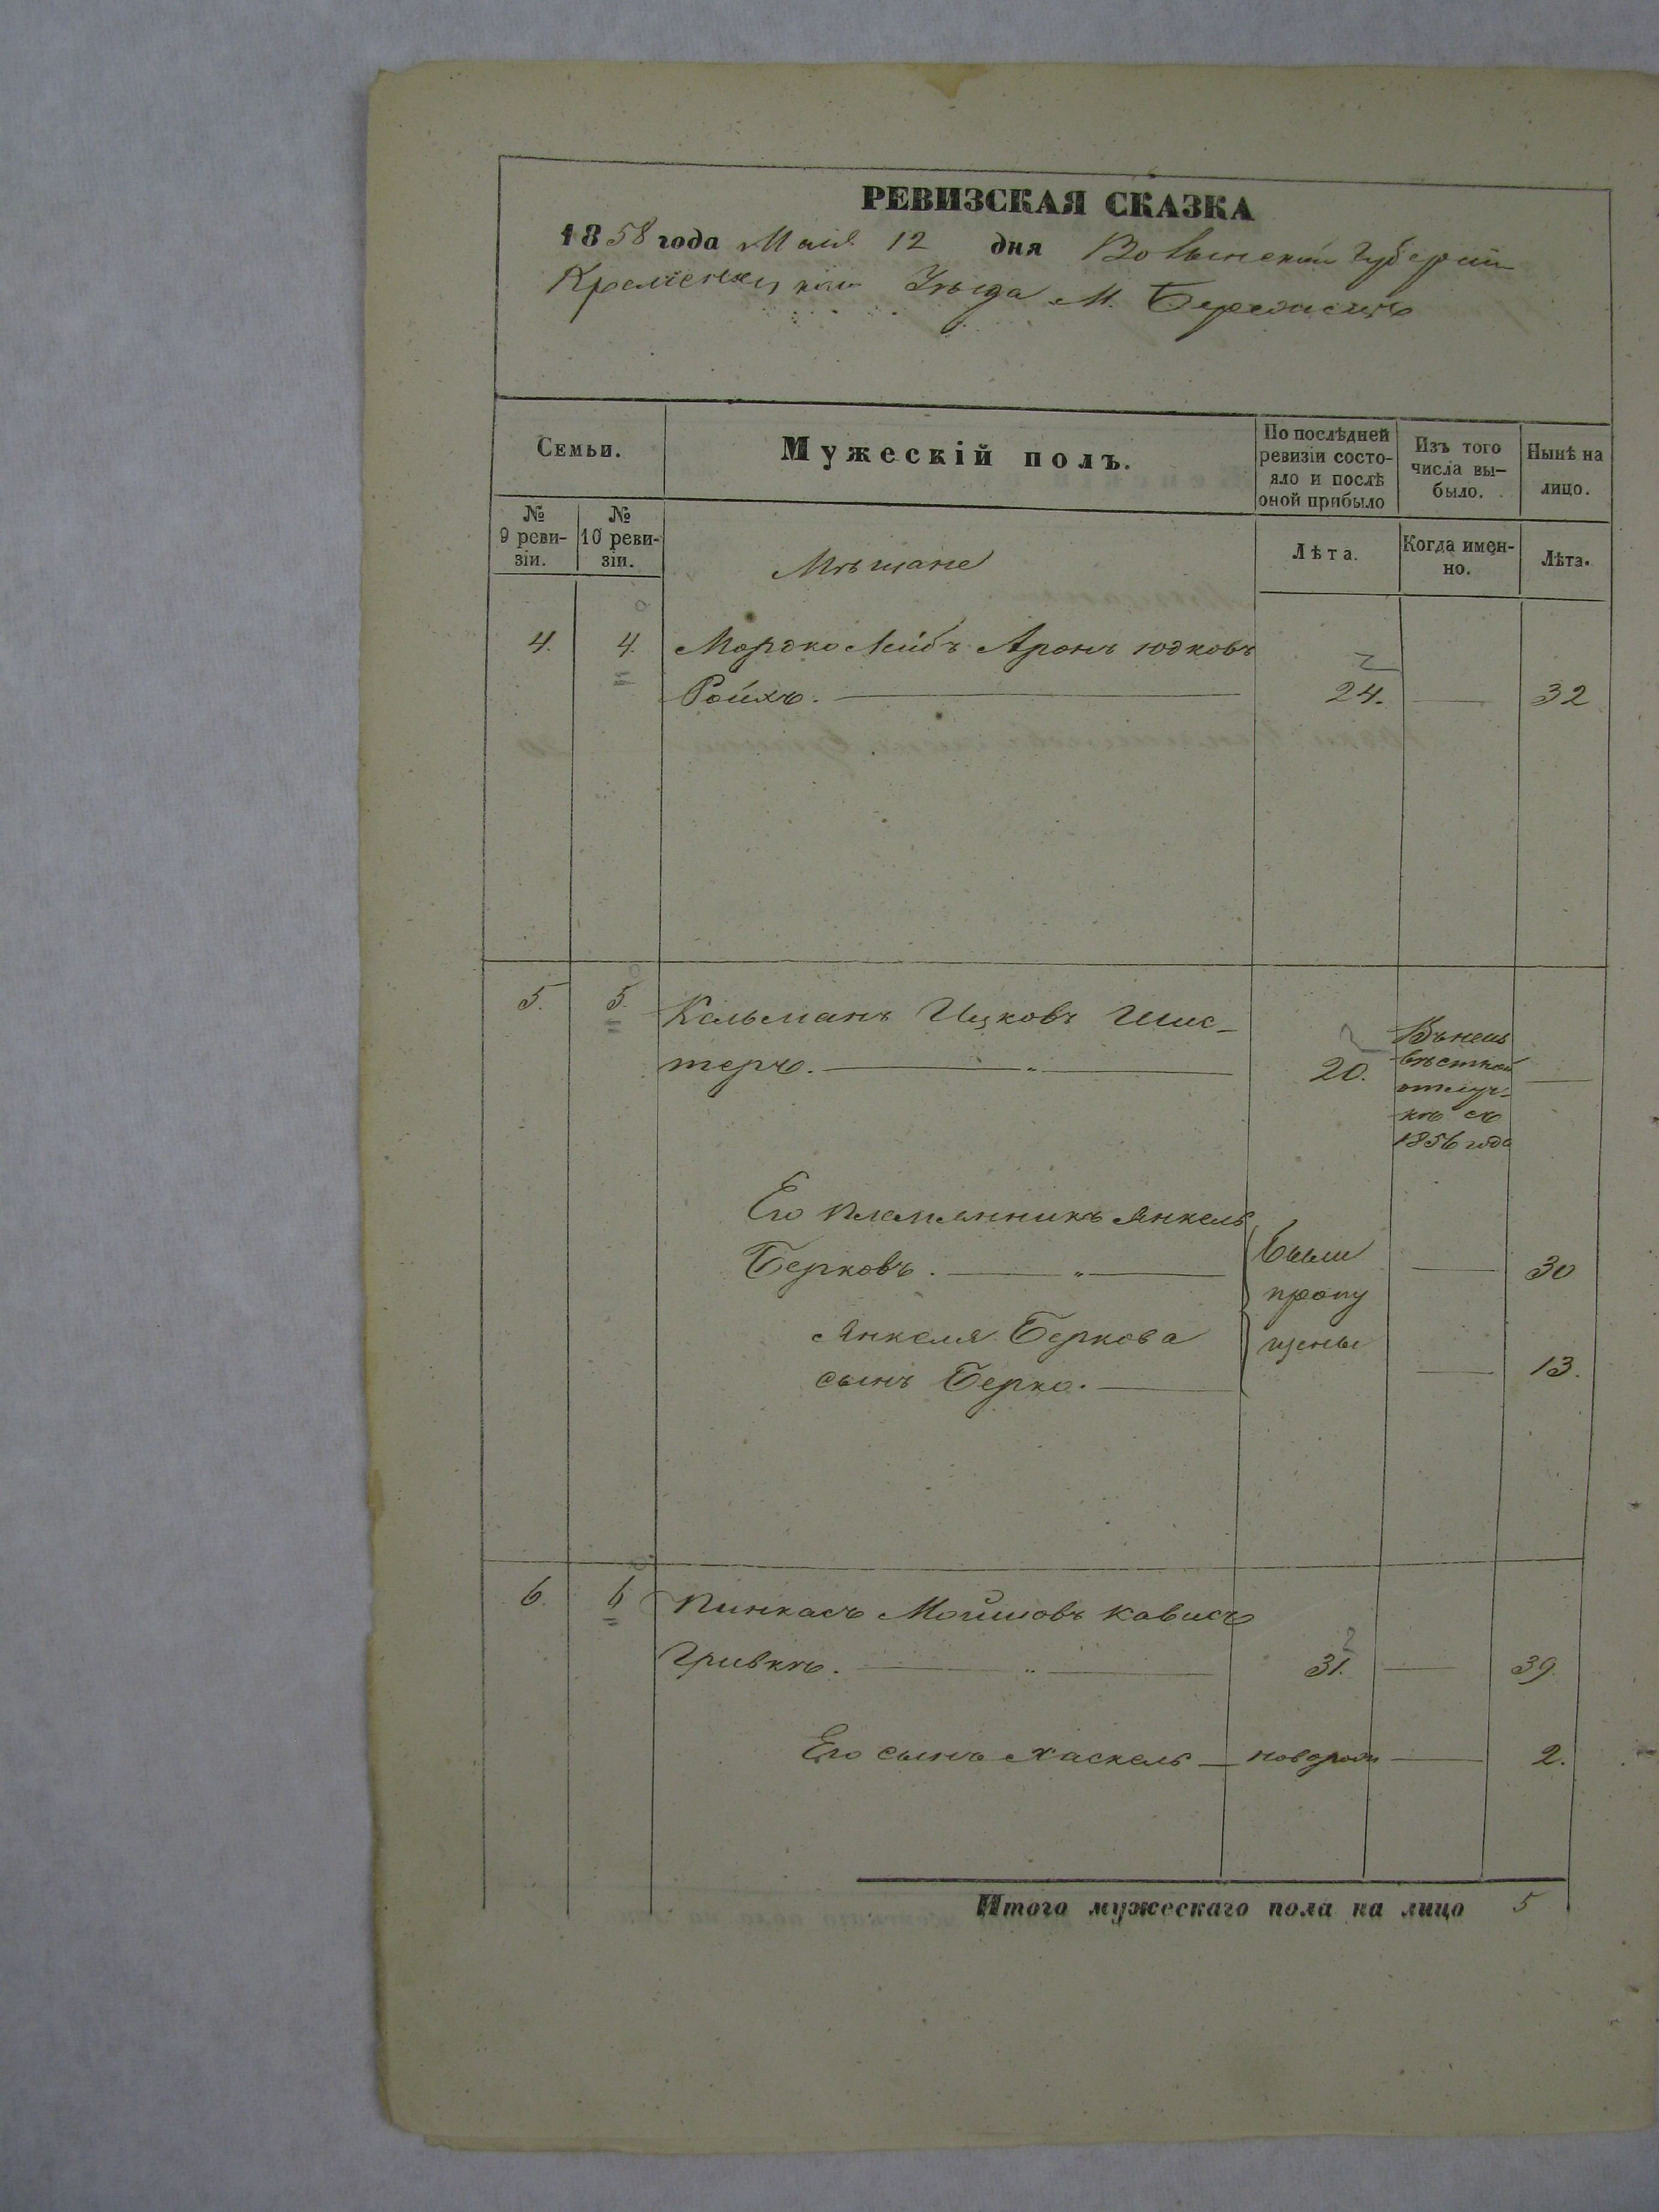 РЕВИЗСКАЯ СКАЗКА
1858 года Мая 12 дня Волынской Губерніи
Кременецкаго Уѣзда М. Бережецъ
Семьи.
Мужескій полъ.
По послѣдней ревизіи состояло и послѣ оной прибыло
Изъ того числа вы-было.
Нынѣ на лицо.
№ 9 реви-зіи.
№ 10 реви-зіи.
Мѣщане
Лѣта.
Когда имен-но.
Лѣта.
4. 4. Мордко Лейбъ Аронъ Юдковъ
Ройхъ. 24. 32
5. 5. Кальманъ Ицковъ Шис-
теръ. 20.
Въ неиз
вѣстной
отлуч-
кѣ съ
1856 года
Его племянникъ Янкель
Берковъ. 30
Янкеля Беркова
сынъ Берко. 13.
были
пропу
щены
6. 6 Пинкасъ Мошковъ
31. 39.
Его сынъ Хаскель новорож 2.
Итого мужескаго пола на лицо 5